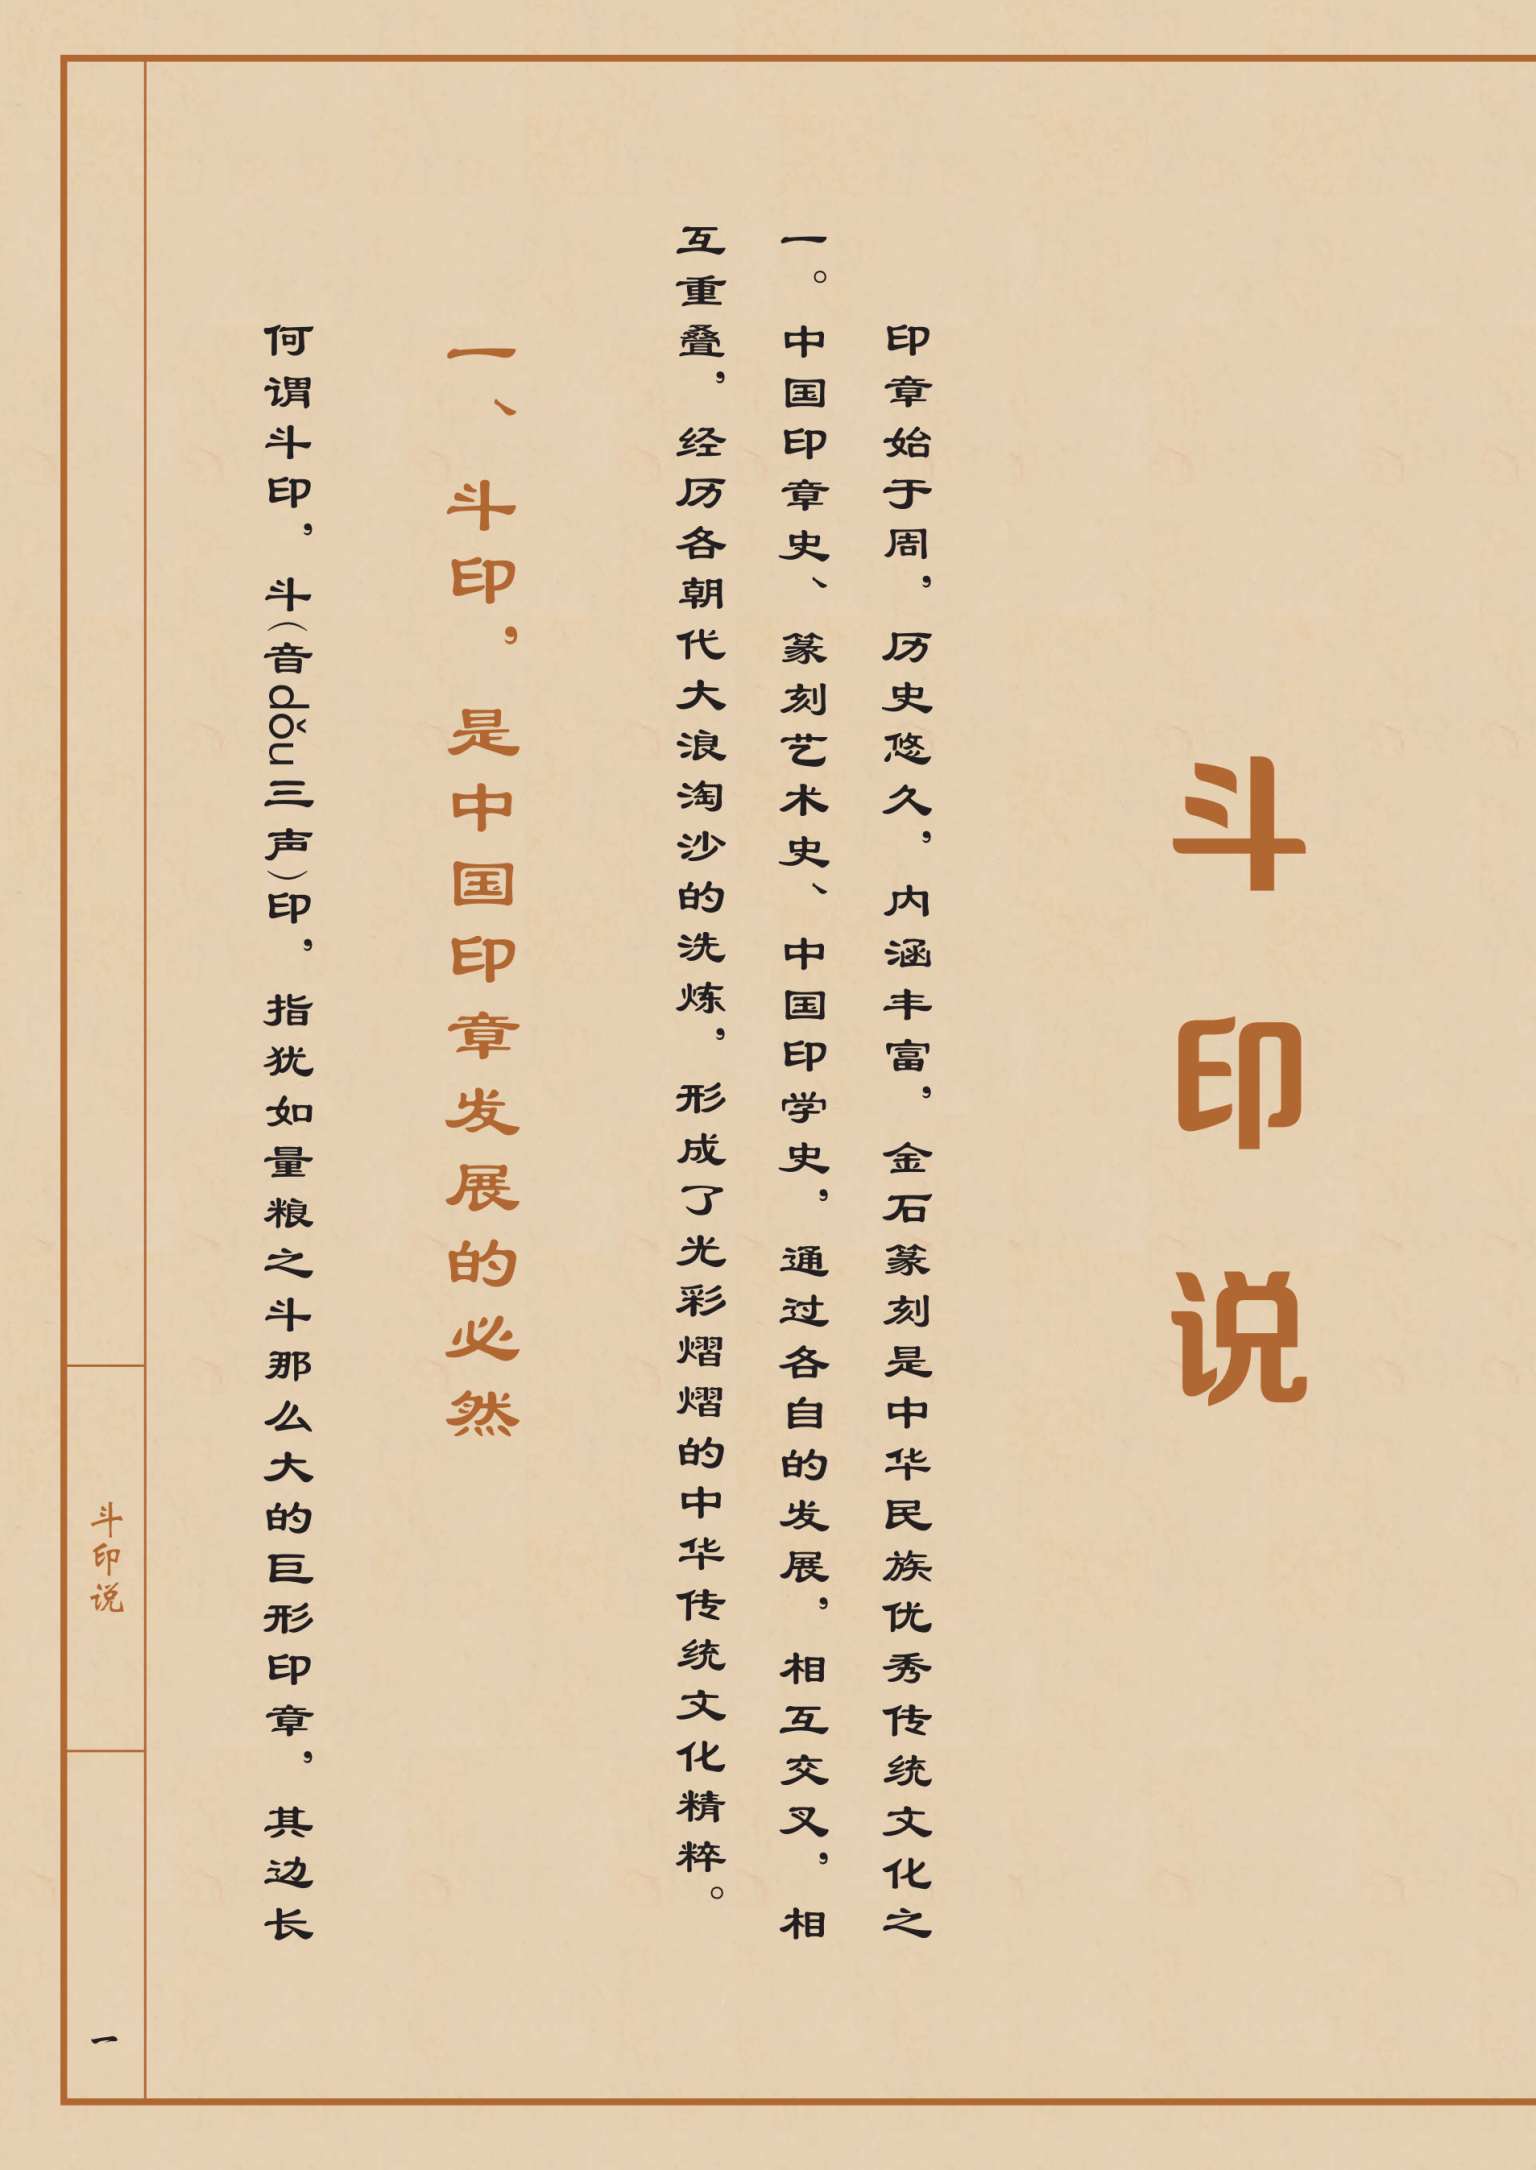 斗印说
印章始于周，历史悠久，内涵丰富，金石篆刻是中华民族优秀传统文化之
一。中国印章史、篆刻艺术史、中国印学史，通过各自的发展，相互交叉，相
互重叠，经历各朝代大浪淘沙的洗炼，形成了光彩熠熠的中华传统文化精粹。
一、斗印，是中国印章发展的必然
何谓斗印，斗（音dǒu三声）印，指犹如量粮之斗那么大的巨形印章，其边长
斗印说
一